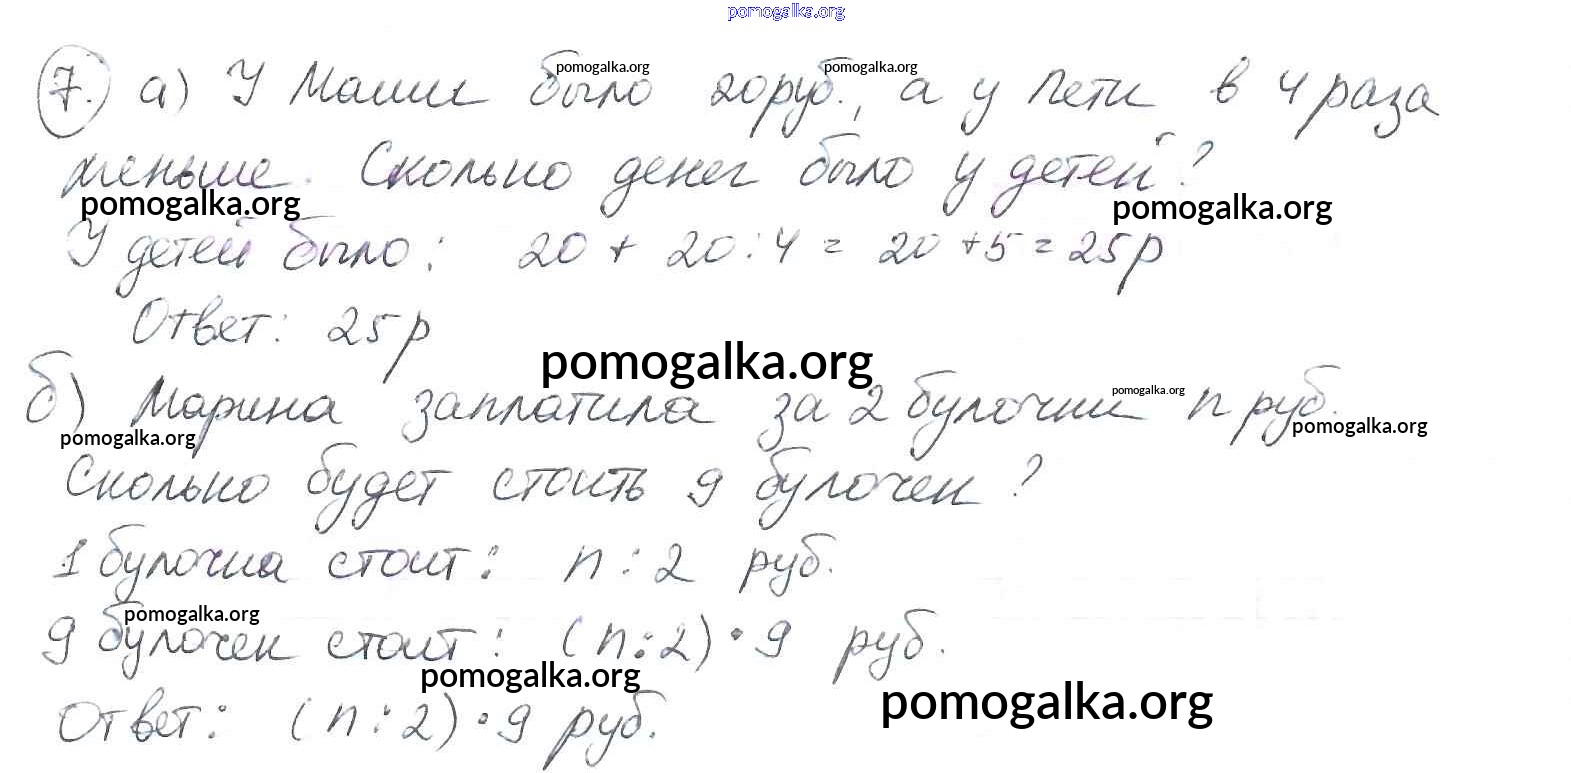 pomogalka.org
7. а) У Маши было 20 руб., а у Пети в 4 раза
pomogalka.org pomogalka.org
меньше. Сколько денег было у детей?
pomogalka.org pomogalka.org
У детей было: 20 + 20 : 4 = 20 + 5 = 25 р
Ответ: 25 р
pomogalka.org
б) Марина заплатила за 2 булочки n руб.
pomogalka.org pomogalka.org pomogalka.org
Сколько будет стоить 9 булочек?
1 булочка стоит: n : 2 руб.
pomogalka.org
9 булочек стоит: (n : 2) • 9 руб.
pomogalka.org pomogalka.org
Ответ: (n : 2) • 9 руб.